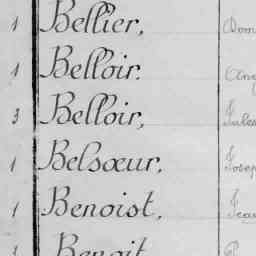 1 Bellier, Dom
1 Belloir. Ang
3 Belloir, Jules
1 Belsœur, Josep
1 Benoist, Jean
1 Benoit